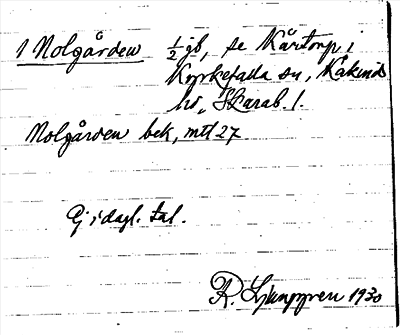 1 Nolgården ½ gb, se Kårtorp i
Kyrkefalla sn, Kåkinds
hd, Skarab. l.
Nolgården bek, mtl 27.
Ej i dagl. tal.
R. Ljunggren 1930